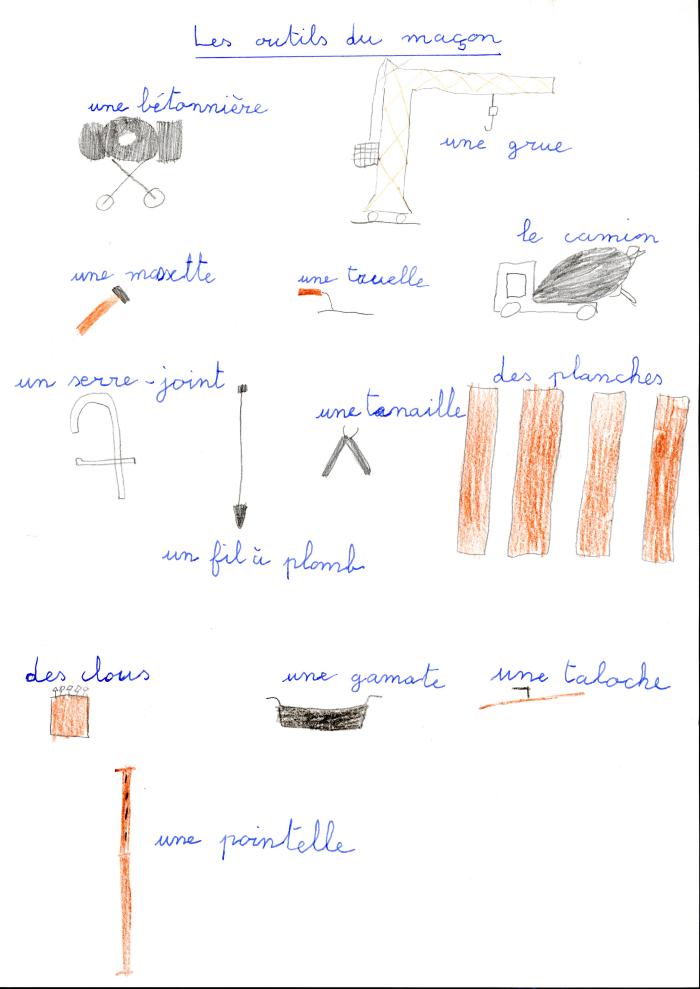 Les outils du maçon
une bétonnière
une grue
le camion
une massette
une truelle
un serre-joint
des planches
une tenaille
un fil à plomb
des clous
une gamate
une taloche
une pointelle